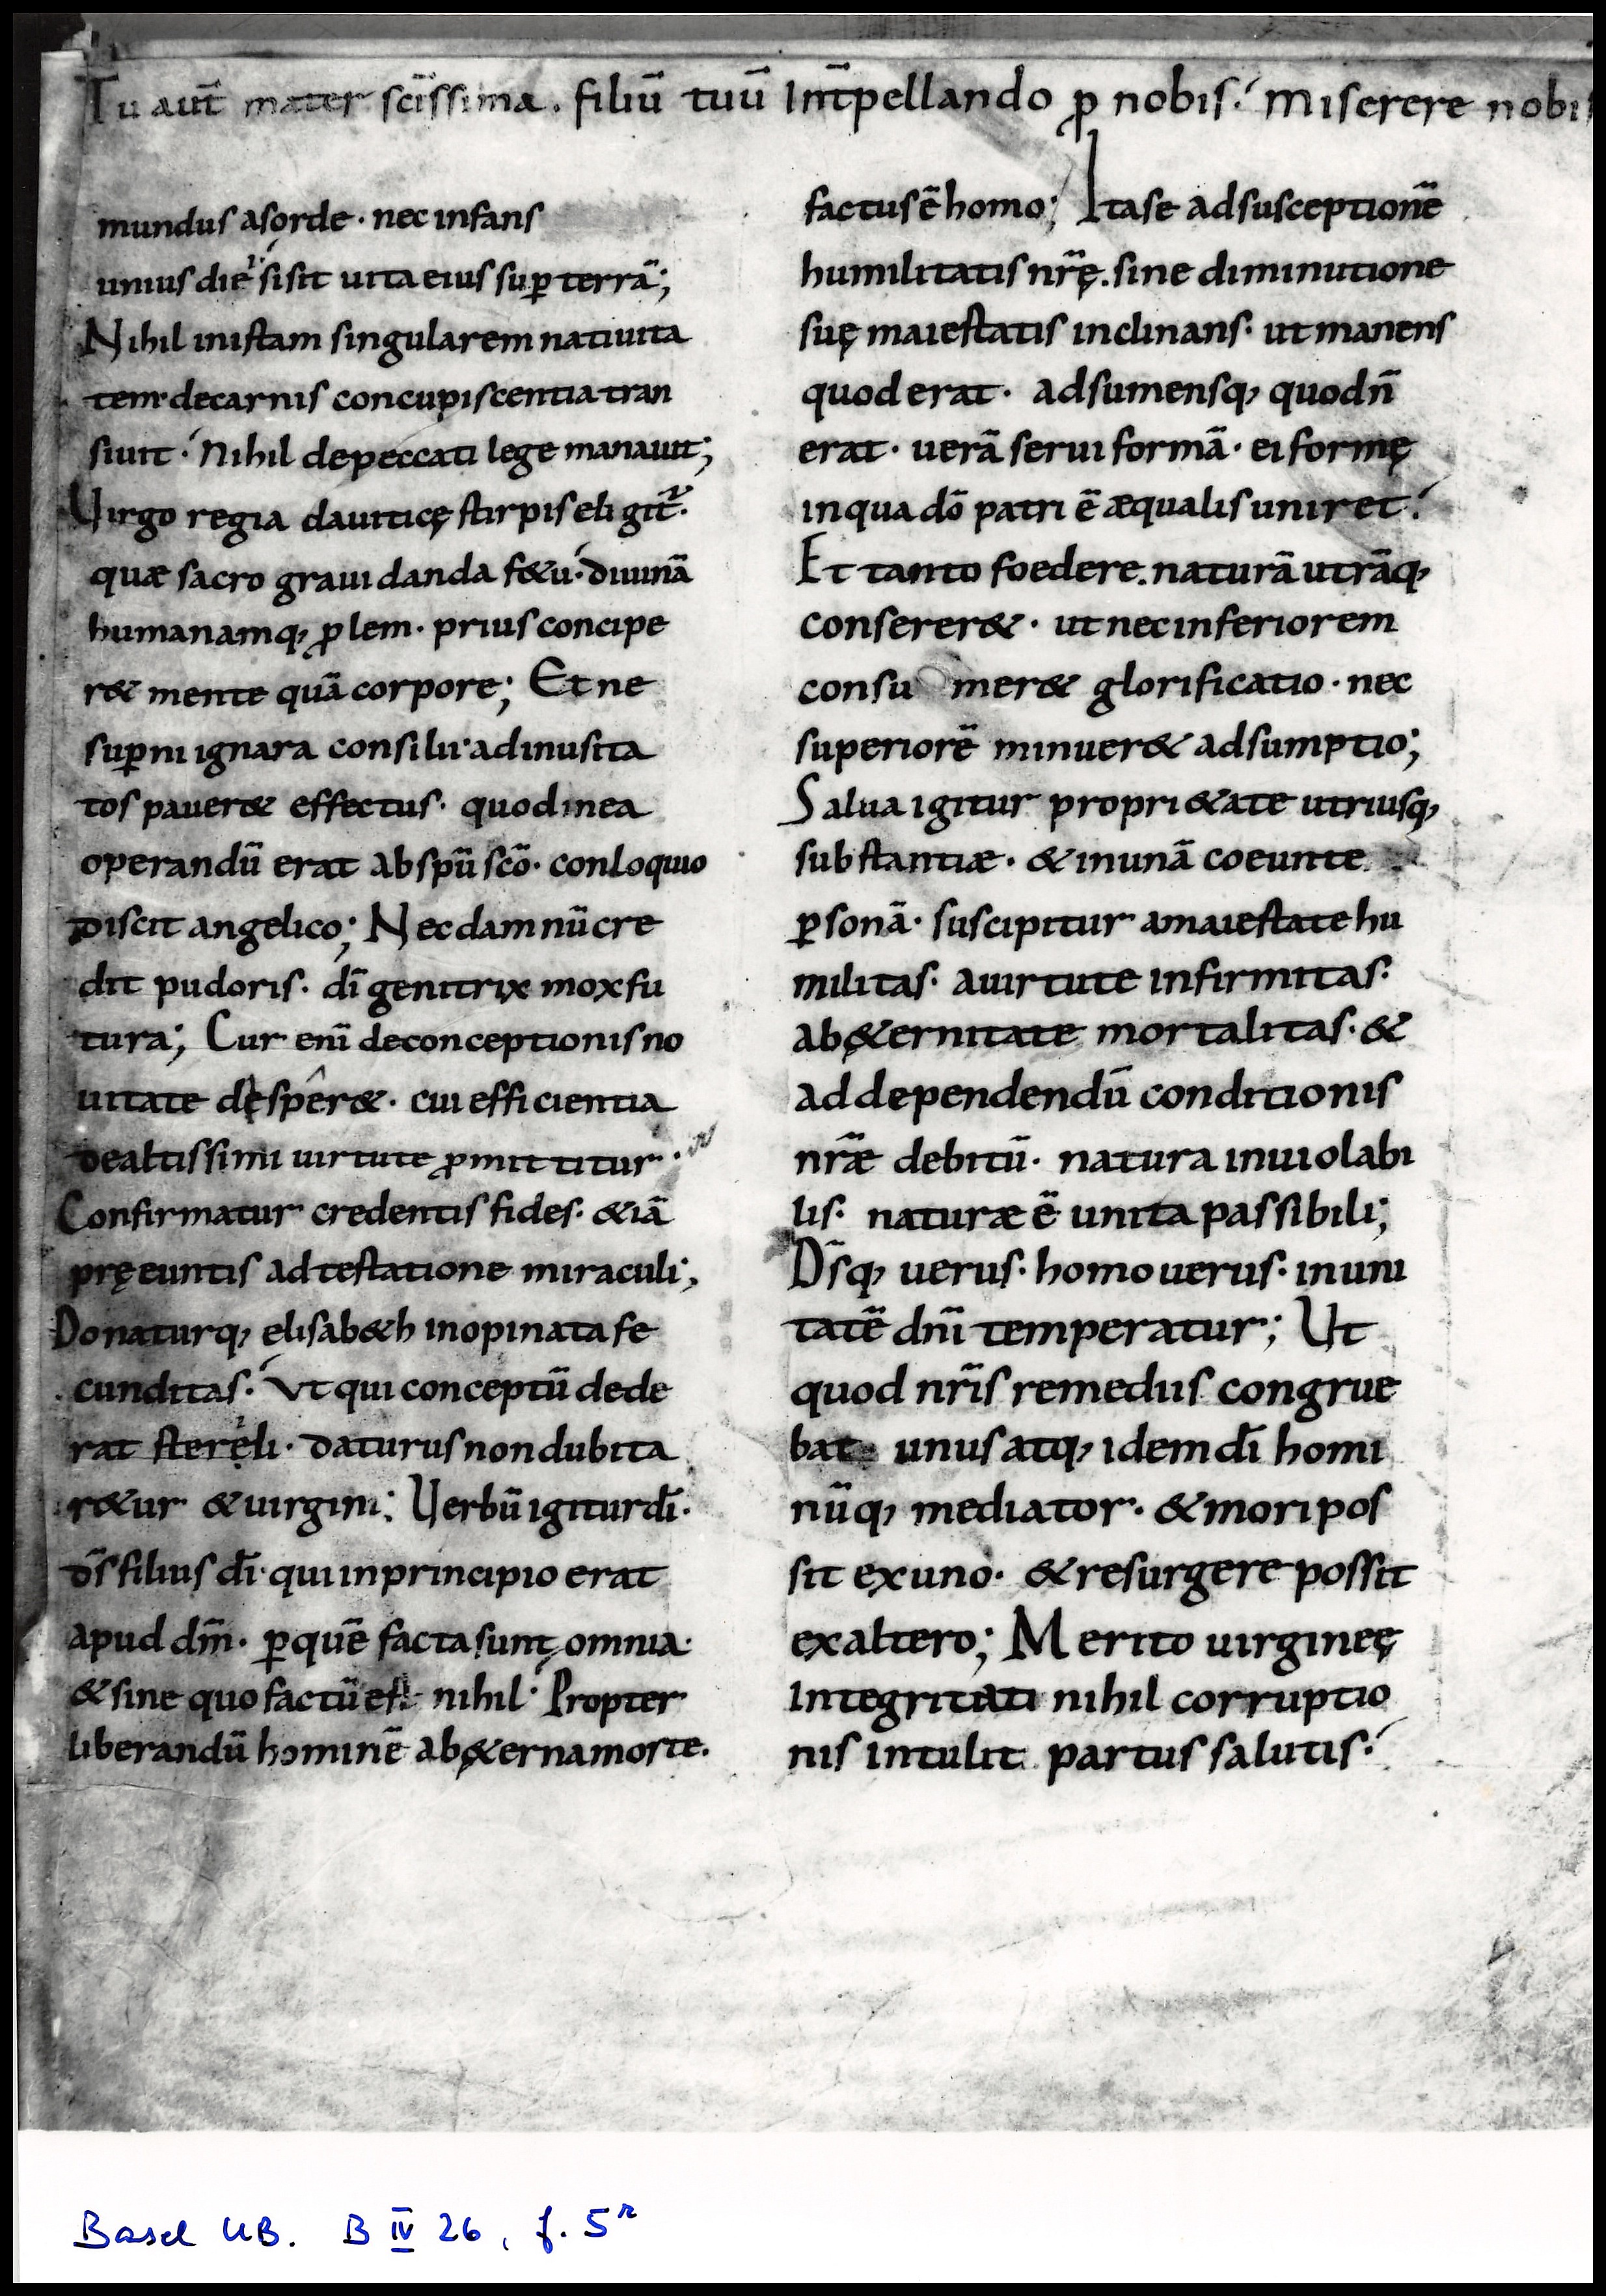 Tu aut̄ mater scīssima. filiū tuū Int̄pellando ꝓ nobis. Miserere nobis
mundus asorde · nec infans
unius diei si sit uita eius suꝑ terrā;
Nihil inistam singularem natiuita
tem · decarnis concupiscentia tran
siuit · Nihil depeccati lege manauit;
Uirgo regia dauiticę stirpis eligit᷑ ·
quæ sacro grauidanda f&u · diuinā
humanamq, ꝓlem · prius concipe
r& mente quā corpore; Et ne
suꝑni ignara consilii · adinusita
tos pauer& effectus · quodinea
operandū erat abspū scō · conloquio
discit angelico; Nec damnū cre
dit pudoris · dī genitrix mox fu
tura; Cur enī deconceptionis no
uitate dęspêr& · cui efficientia
dealtissimi uirtute ꝓmittitur ·
Confirmatur credentis fides · &iā
pręeuntis adtestatione miraculi;
Donaturq, elisab&h inopinata fe
cunditas · Ut qui conceptū dede
rat sterili · daturus non dubita
r&ur & uirgini; Uerbū igitur dī ·
ds̄ filius dī · qui inprincipio erat
apud dm̄ · ꝑ quē facta sunt omnia ·
& sine quo factū est nihil · Propter
liberandū hominē ab ę&erna morte.
factus ē homo; Ita se adsusceptionē
humilitatis nr̄ę. sine diminutione
suę maiestatis inclinans · ut manens
quod erat · adsumensq, quod n̄
erat · uerā serui formā · ei formę
inqua dō patri ē æqualis uniret ·
Et tanto foedere. naturā utrāq,
conserer& · ut nec inferiorem
consu mer& glorificatio · nec
superiorē minuer& adsumptio;
Salua igitur propri&ate utriusq,
substantiæ · & inunā coeunte
ꝑsonā · suscipitur amaiestate hu
militas · auirtute infirmitas ·
ab ę&ernitate mortalitas · &
ad dependendū conditionis
nr̄æ debitū · natura inuiolabi
lis · naturæ ē unita passibili;
Ds̄q, uerus · homo uerus · inuni
tatē dnī temperatur; Ut
quod nr̄is remediis congrue
bat unus atq, idem dī homi
nūq, mediator · & mori pos
sit ex uno · & resurgere possit
ex altero; Merito uirgineę
integritati nihil corruptio
nis intulit partus salutis ·
Basel UB. B IV 26, f. 5r